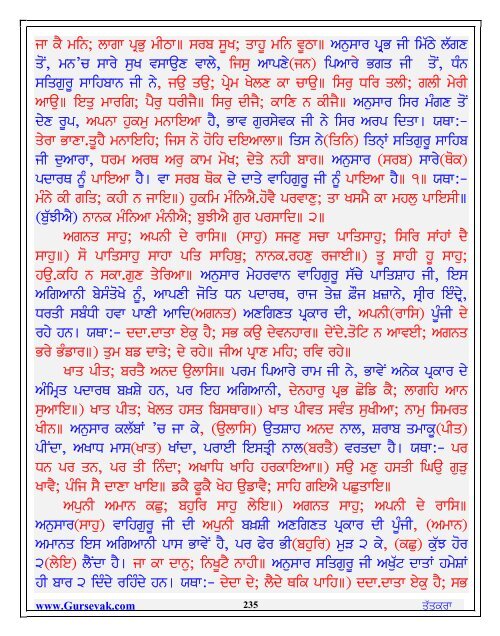 ਜਾ ਕੈ ਮਨਿ; ਲਾਗਾ ਪ੍ਰਭੁ ਮੀਠਾ॥ ਸਰਬ ਸੂਖ; ਤਾਹੂ ਮਨਿ ਵੂਠਾ॥ ਅਨੁਸਾਰ ਪ੍ਰਭ ਜੀ ਮਿੱਠੇ ਲੱਗਣ
ਤੋਂ, ਮਨ'ਚ ਸਾਰੇ ਸੁਖ ਵਸਾਉਣ ਵਾਲੇ, ਜਿਸੁ ਆਪਣੇ(ਜਨ) ਪਿਆਰੇ ਭਗਤ ਜੀ ਤੋਂ, ਧੰਨ
ਸਤਿਗੁਰੂ ਸਾਹਿਬਾਨ ਜੀ ਨੇ, ਜਉ ਤਉ; ਪ੍ਰੇਮ ਖੇਲਣ ਕਾ ਚਾਉ॥ ਸਿਰੁ ਧਰਿ ਤਲੀ; ਗਲੀ ਮੇਰੀ
ਆਉ॥ ਇਤੁ ਮਾਰਗਿ; ਪੈਰੁ ਧਰੀਜੈ॥ ਸਿਰੁ ਦੀਜੈ; ਕਾਣਿ ਨ ਕੀਜੈ॥ ਅਨੁਸਾਰ ਸਿਰ ਮੰਗਣ ਤੋਂ
ਦੇਣ ਰੂਪ, ਅਪਨਾ ਹੁਕਮੁ ਮਨਾਇਆ ਹੈ, ਭਾਵ ਗੁਰਸੇਵਕ ਜੀ ਨੇ ਸਿਰ ਅਰਪ ਦਿਤਾ। ਯਥਾ:-
ਤੇਰਾ ਭਾਣਾ.ਤੂਹੈ ਮਨਾਇਹਿ; ਜਿਸ ਨੋ ਹੋਹਿ ਦਇਆਲਾ॥ ਤਿਸ ਨੇ(ਤਿਨਿ) ਤਿਨ੍ਹਾਂ ਸਤਿਗੁਰੂ ਸਾਹਿਬ
ਜੀ ਦੁਆਰਾ, ਧਰਮ ਅਰਥ ਅਰੁ ਕਾਮ ਮੋਖੁ; ਦੇਤੇ ਨਹੀ ਬਾਰ॥ ਅਨੁਸਾਰ (ਸਰਬ) ਸਾਰੇ(ਥੋਕ)
ਪਦਾਰਥ ਨੂੰ ਪਾਇਆ ਹੈ। ਵਾ ਸਰਬ ਥੋਕ ਦੇ ਦਾਤੇ ਵਾਹਿਗੁਰੂ ਜੀ ਨੂੰ ਪਾਇਆ ਹੈ॥ ੧॥ ਯਥਾ:-
ਮੰਨੇ ਕੀ ਗਤਿ; ਕਹੀ ਨ ਜਾਇ॥) ਹੁਕਮਿ ਮੰਨਿਐ.ਹੋਵੈ ਪਰਵਾਣੁ; ਤਾ ਖਸਮੈ ਕਾ ਮਹਲੁ ਪਾਇਸੀ॥
(ਬੁੱਝੀਐ) ਨਾਨਕ ਮੰਨਿਆ ਮੰਨੀਐ; ਬੁਝੀਐ ਗੁਰ ਪਰਸਾਦਿ॥ ੨॥
ਅਗਨਤ ਸਾਹੁ; ਅਪਨੀ ਦੇ ਰਾਸਿ॥ (ਸਾਹੁ) ਸਜਣੁ ਸਚਾ ਪਾਤਿਸਾਹੁ; ਸਿਰਿ ਸਾਂਹਾਂ ਦੈ
ਸਾਹੁ॥) ਸੋ ਪਾਤਿਸਾਹੁ ਸਾਹਾ ਪਤਿ ਸਾਹਿਬੁ; ਨਾਨਕ.ਰਹਣੁ ਰਜਾਈ॥) ਤੂ ਸਾਹੀ ਹੂ ਸਾਹੁ;
ਹਉ.ਕਹਿ ਨ ਸਕਾ.ਗੁਣ ਤੇਰਿਆ॥ ਅਨੁਸਾਰ ਮੇਹਰਵਾਨ ਵਾਹਿਗੁਰੂ ਸੱਚੇ ਪਾਤਿਸ਼ਾਹ ਜੀ, ਇਸ
ਅਗਿਆਨੀ ਬੇਸੰਤੋਖੇ ਨੂੰ, ਆਪਣੀ ਜੋਤਿ ਧਨ ਪਦਾਰਥ, ਰਾਜ ਤੇਜ਼ ਫ਼ੌਜ ਖ਼ਜ਼ਾਨੇ, ਸ੍ਰੀਰ ਇੰਦ੍ਰੇ,
ਧਰਤੀ ਸਬੰਧੀ ਹਵਾ ਪਾਣੀ ਆਦਿ(ਅਗਨਤ) ਅਣਗਿਣਤ ਪ੍ਰਕਾਰ ਦੀ, ਅਪਨੀ(ਰਾਸਿ) ਪੂੰਜੀ ਦੇ
ਰਹੇ ਹਨ। ਯਥਾ:- ਦਦਾ.ਦਾਤਾ ਏਕੁ ਹੈ; ਸਭ ਕਉ ਦੇਵਨਹਾਰ॥ ਦੇਂਦੇ.ਤੋਟਿ ਨ ਆਵਈ; ਅਗਨਤ
ਭਰੇ ਭੰਡਾਰ॥) ਤੁਮ ਬਡ ਦਾਤੇ; ਦੇ ਰਹੇ॥ ਜੀਅ ਪ੍ਰਾਣ ਮਹਿ; ਰਵਿ ਰਹੇ॥
ਖਾਤ ਪੀਤ; ਬਰਤੈ ਅਨਦ ਉਲਾਸਿ॥ ਪਰਮ ਪਿਆਰੇ ਰਾਮ ਜੀ ਨੇ, ਭਾਵੇਂ ਅਨੇਕ ਪ੍ਰਕਾਰ ਦੇ
ਅੰਮ੍ਰਿਤ ਪਦਾਰਥ ਬਖ਼ਸ਼ੇ ਹਨ, ਪਰ ਇਹ ਅਗਿਆਨੀ, ਦੇਨਹਾਰੁ ਪ੍ਰਭ ਛੋਡਿ ਕੈ; ਲਾਗਹਿ ਆਨ
ਸੁਆਇ॥) ਖਾਤ ਪੀਤ; ਖੇਲਤ ਹਸਤ ਬਿਸਥਾਰ॥) ਖਾਤ ਪੀਵਤ ਸਵੰਤ ਸੁਖੀਆ; ਨਾਮੁ ਸਿਮਰਤ
ਖੀਨ॥ ਅਨੁਸਾਰ ਕਲੱਬਾਂ 'ਚ ਜਾ ਕੇ, (ਉਲਾਸਿ) ਉਤਸ਼ਾਹ ਅਨਦ ਨਾਲ, ਸ਼ਰਾਬ ਤਮਾਕੂ(ਪੀਤ)
ਪੀਂਦਾ, ਅਖਾਧ ਮਾਸ(ਖਾਤ) ਖਾਂਦਾ, ਪਰਾਈ ਇਸਤ੍ਰੀ ਨਾਲ(ਬਰਤੈ) ਵਰਤਦਾ ਹੈ। ਯਥਾ:- ਪਰ
ਧਨ ਪਰ ਤਨ, ਪਰ ਤੀ ਨਿੰਦਾ; ਅਖਾਧਿ ਖਾਹਿ ਹਰਕਾਇਆ॥) ਸਉ ਮਣੁ ਹਸਤੀ ਘਿਉ ਗੁੜੁ
ਖਾਵੈ; ਪੰਜਿ ਸੈ ਦਾਣਾ ਖਾਇ॥ ਡਕੈ ਫੂਕੈ ਖੇਹ ਉਡਾਵੈ; ਸਾਹਿ ਗਇਐ ਪਛੁਤਾਇ॥
ਅਪੁਨੀ ਅਮਾਨ ਕਛੁ; ਬਹੁਰਿ ਸਾਹੁ ਲੇਇ॥) ਅਗਨਤ ਸਾਹੁ; ਅਪਨੀ ਦੇ ਰਾਸਿ॥
ਅਨੁਸਾਰ(ਸਾਹੁ) ਵਾਹਿਗੁਰੂ ਜੀ ਦੀ ਅਪੁਨੀ ਬਖ਼ਸ਼ੀ ਅਣਗਿਣਤ ਪ੍ਰਕਾਰ ਦੀ ਪੂੰਜੀ, (ਅਮਾਨ)
ਅਮਾਨਤ ਇਸ ਅਗਿਆਨੀ ਪਾਸ ਭਾਵੇਂ ਹੈ, ਪਰ ਫੇਰ ਭੀ(ਬਹੁਰਿ) ਮੁੜ ੨ ਕੇ, (ਕਛੁ) ਕੁੱਝ ਹੋਰ
੨(ਲੇਇ) ਲੈਂਦਾ ਹੈ। ਜਾ ਕਾ ਦਾਨੁ; ਨਿਖੂਟੈ ਨਾਹੀ॥ ਅਨੁਸਾਰ ਸਤਿਗੁਰੂ ਜੀ ਅਖੁੱਟ ਦਾਤਾਂ ਹਮੇਸ਼ਾਂ
ਹੀ ਬਾਰ ੨ ਦਿੰਦੇ ਰਹਿੰਦੇ ਹਨ। ਯਥਾ:- ਦੇਦਾ ਦੇ; ਲੈਦੇ ਥਕਿ ਪਾਹਿ॥) ਦਦਾ.ਦਾਤਾ ਏਕੁ ਹੈ; ਸਭ
www.Gursevak.com 235 ਤੱਤਕਰਾ